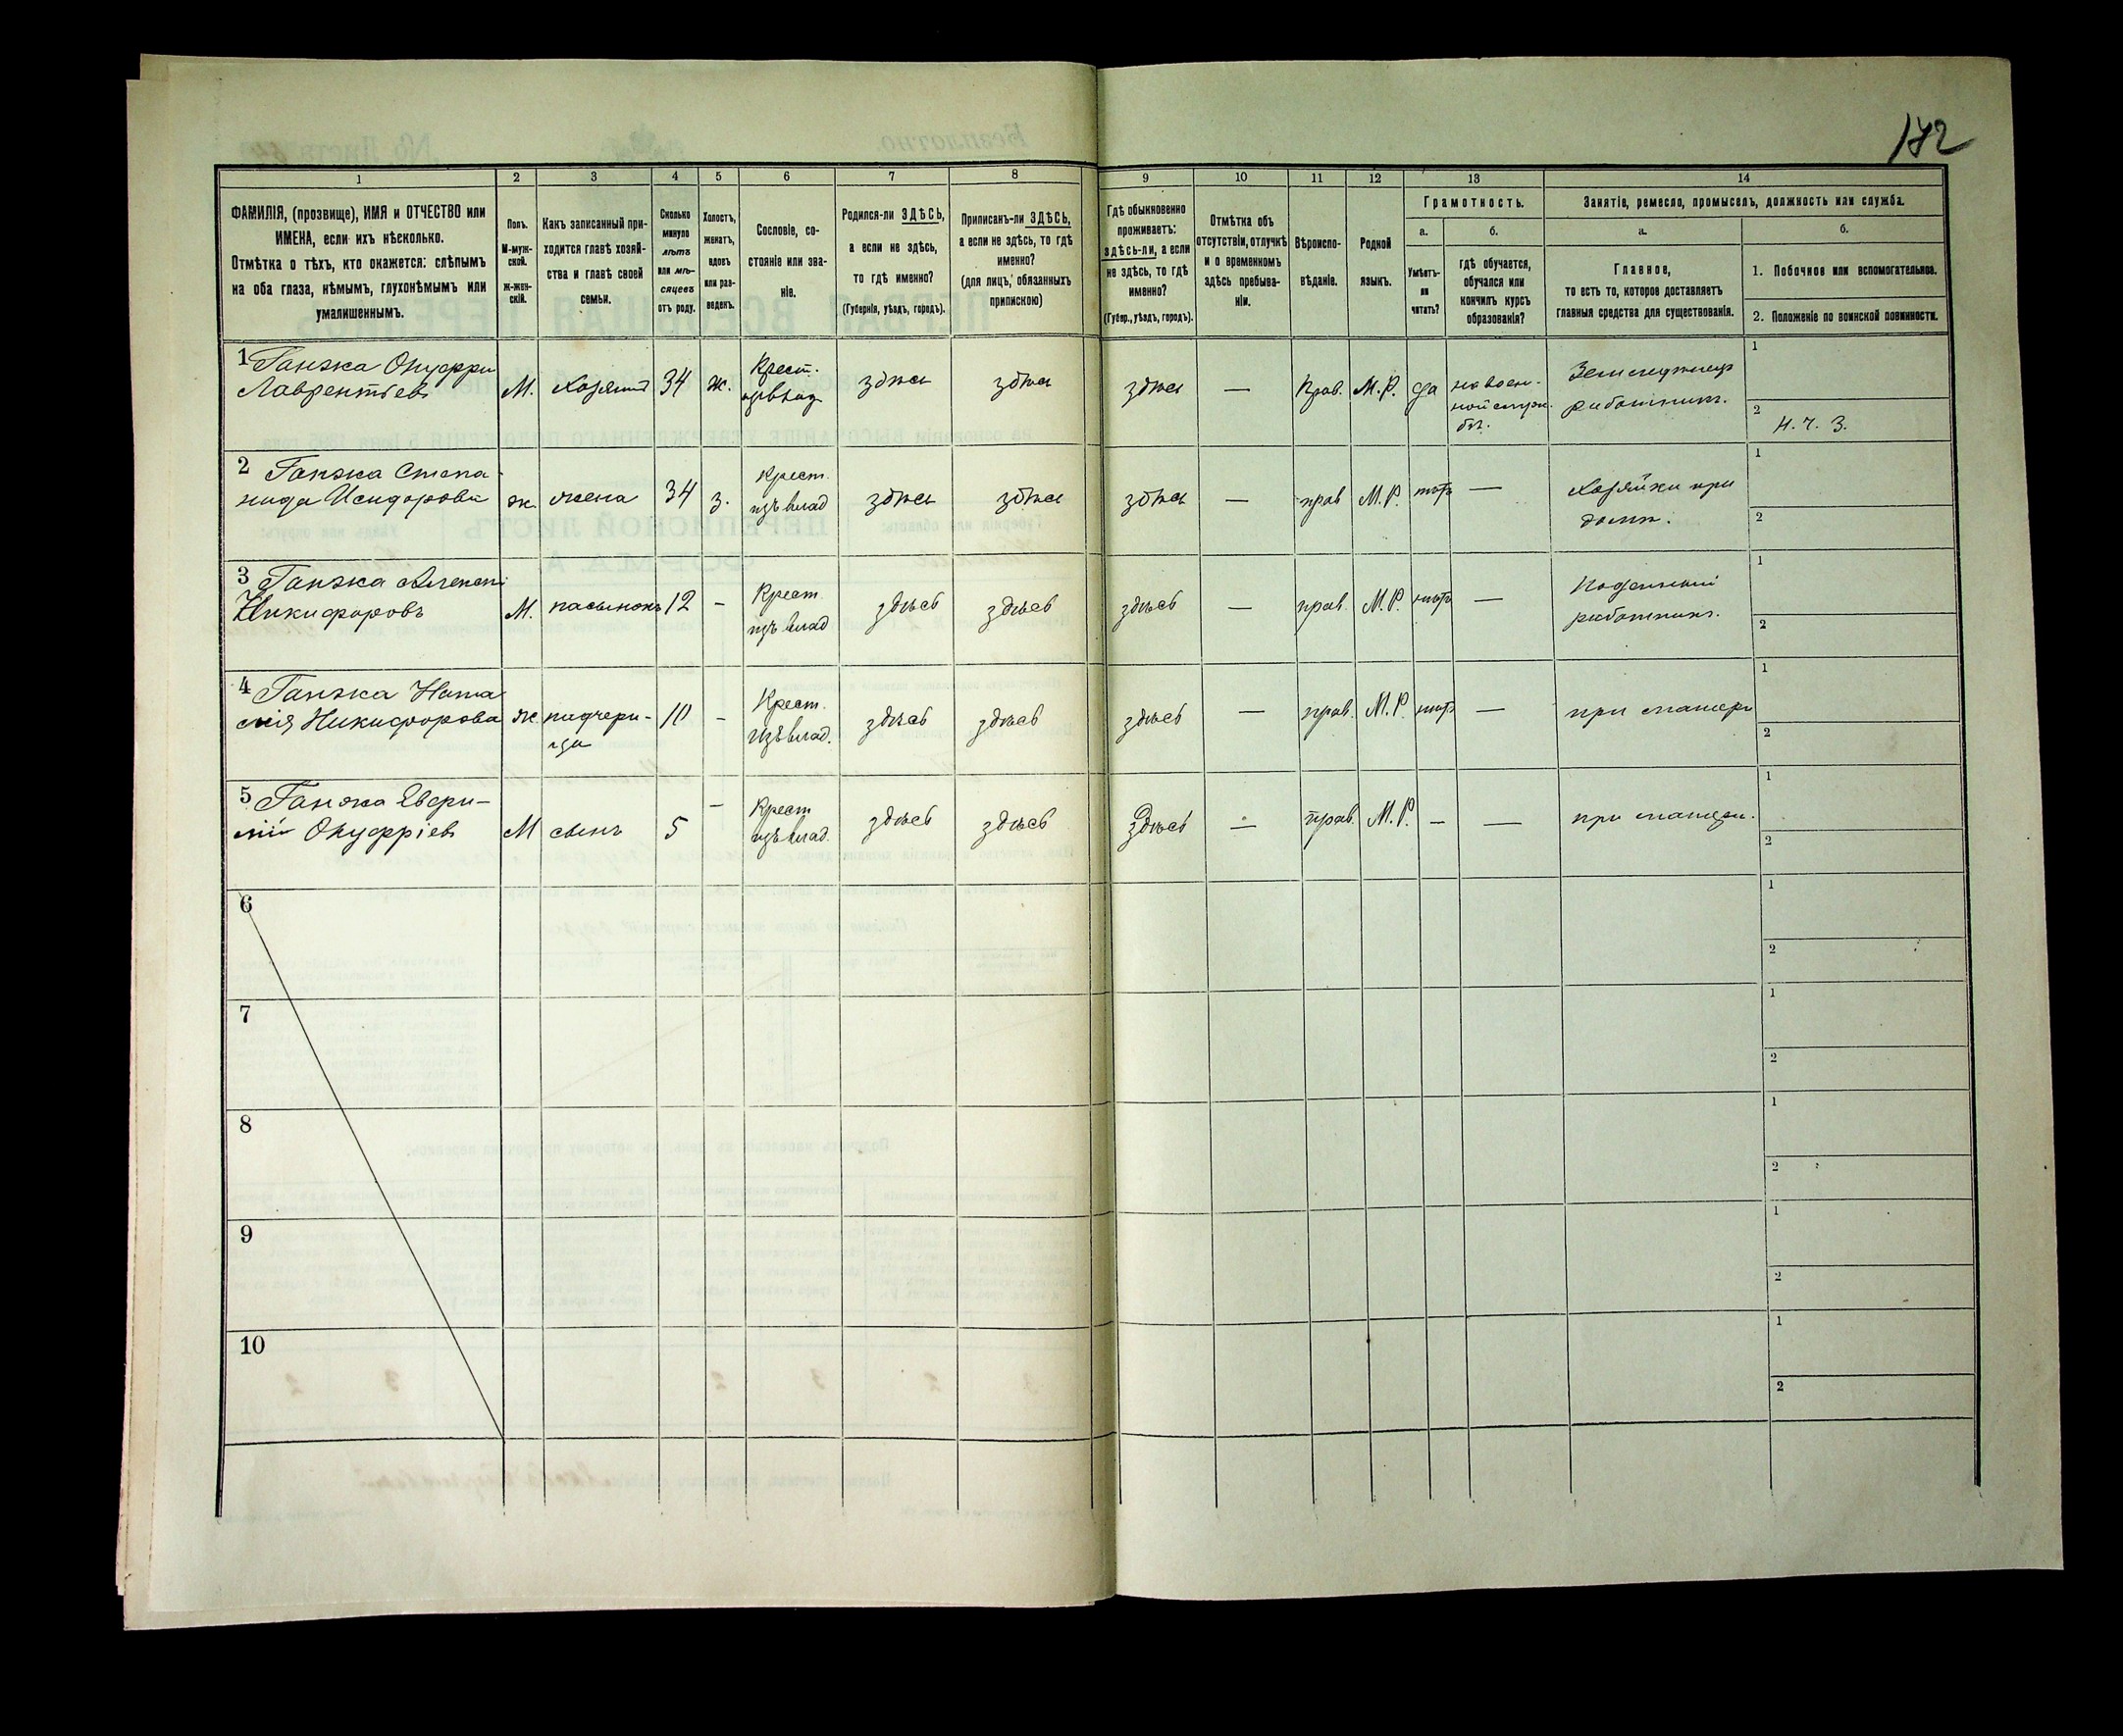 172
1 2 3 4 5 6 7 8 9 10 11 12 13 14
ФАМИЛІЯ, (прозвище), ИМЯ и ОТЧЕСТВО или
ИМЕНА, если ихъ нѣсколько.
Отмѣтка о тѣхъ, кто окажется: слѣпымъ
на оба глаза, нѣмымъ, глухонѣмымъ или
умалишеннымъ.
Полъ.
М-муж-
ской.
ж-жен-
скій.
Какъ записанный при-
ходится главѣ хозяй-
ства и главѣ своей
семьи.
Сколько
минуло
лѣтъ
или мѣ-
сяцевъ
отъ роду.
Холостъ,
женатъ,
вдовъ
или раз-
веденъ.
Сословіе, со-
стояніе или зва-
ніе.
Родился-ли ЗДѢСЬ,
а если не здѣсь,
то гдѣ именно?
(Губернія, уѣздъ, городъ).
Приписанъ-ли ЗДѢСЬ,
а если не здѣсь, то гдѣ
именно?
(для лицъ, обязанныхъ
припискою)
Гдѣ обыкновенно
проживаетъ:
здѣсь-ли, а если
не здѣсь, то гдѣ
именно?
(Губер., уѣздъ, городъ).
Отмѣтка объ
отсутствіи, отлучкѣ
и о временномъ
здѣсь пребыва-
ніи.
Вѣроиспо-
вѣданіе.
Родной
языкъ.
Грамотность.
а.
Умѣетъ-
ли
читать?
б.
гдѣ обучается,
обучался или
кончилъ курсъ
образованія?
Занятіе, ремесло, промыселъ, должность или служба.
а.
Главное,
то есть то, которое доставляетъ
главныя средства для существованія.
б.
1. Побочное или вспомогательное.
2. Положеніе по воинской повинности.
1 Ганжа Онуфрій
Лаврентьевъ
М. Хозяинъ 34 ж.
Крест.
изъ влад
здѣсь здѣсь здѣсь — Прав. М.Р. да
на воен-
ной служ-
бѣ.
работникъ.
1
2 Н. Ч. З.
2 Ганжа Степа-
нида Исидорова
ж. жена 34 з.
Крест.
изъ влад
здѣсь здѣсь здѣсь — прав М.Р. нѣтъ —
Хозяйка при
домѣ.
1
2
3 Ганжа
Никифоровъ
М. пасынокъ 12 —
Крест.
изъ влад
здѣсь здѣсь здѣсь — прав. М.Р. нѣтъ —
Поденный
работникъ.
1
2
4 Ганжа Ната
лія Никифорова
ж. падчери-
ца
10 —
Крест.
изъ влад.
здѣсь здѣсь здѣсь — прав. М.Р. нѣтъ —
при матери
1
2
5 Ганжа Евфи-
мій Онуфріевъ
М сынъ 5 —
Крест
изъ влад.
здѣсь здѣсь здѣсь — прав. М.Р. — —
при матери.
1
2
6
1
2
7
1
2
8
1
2
9
1
2
10
1
2